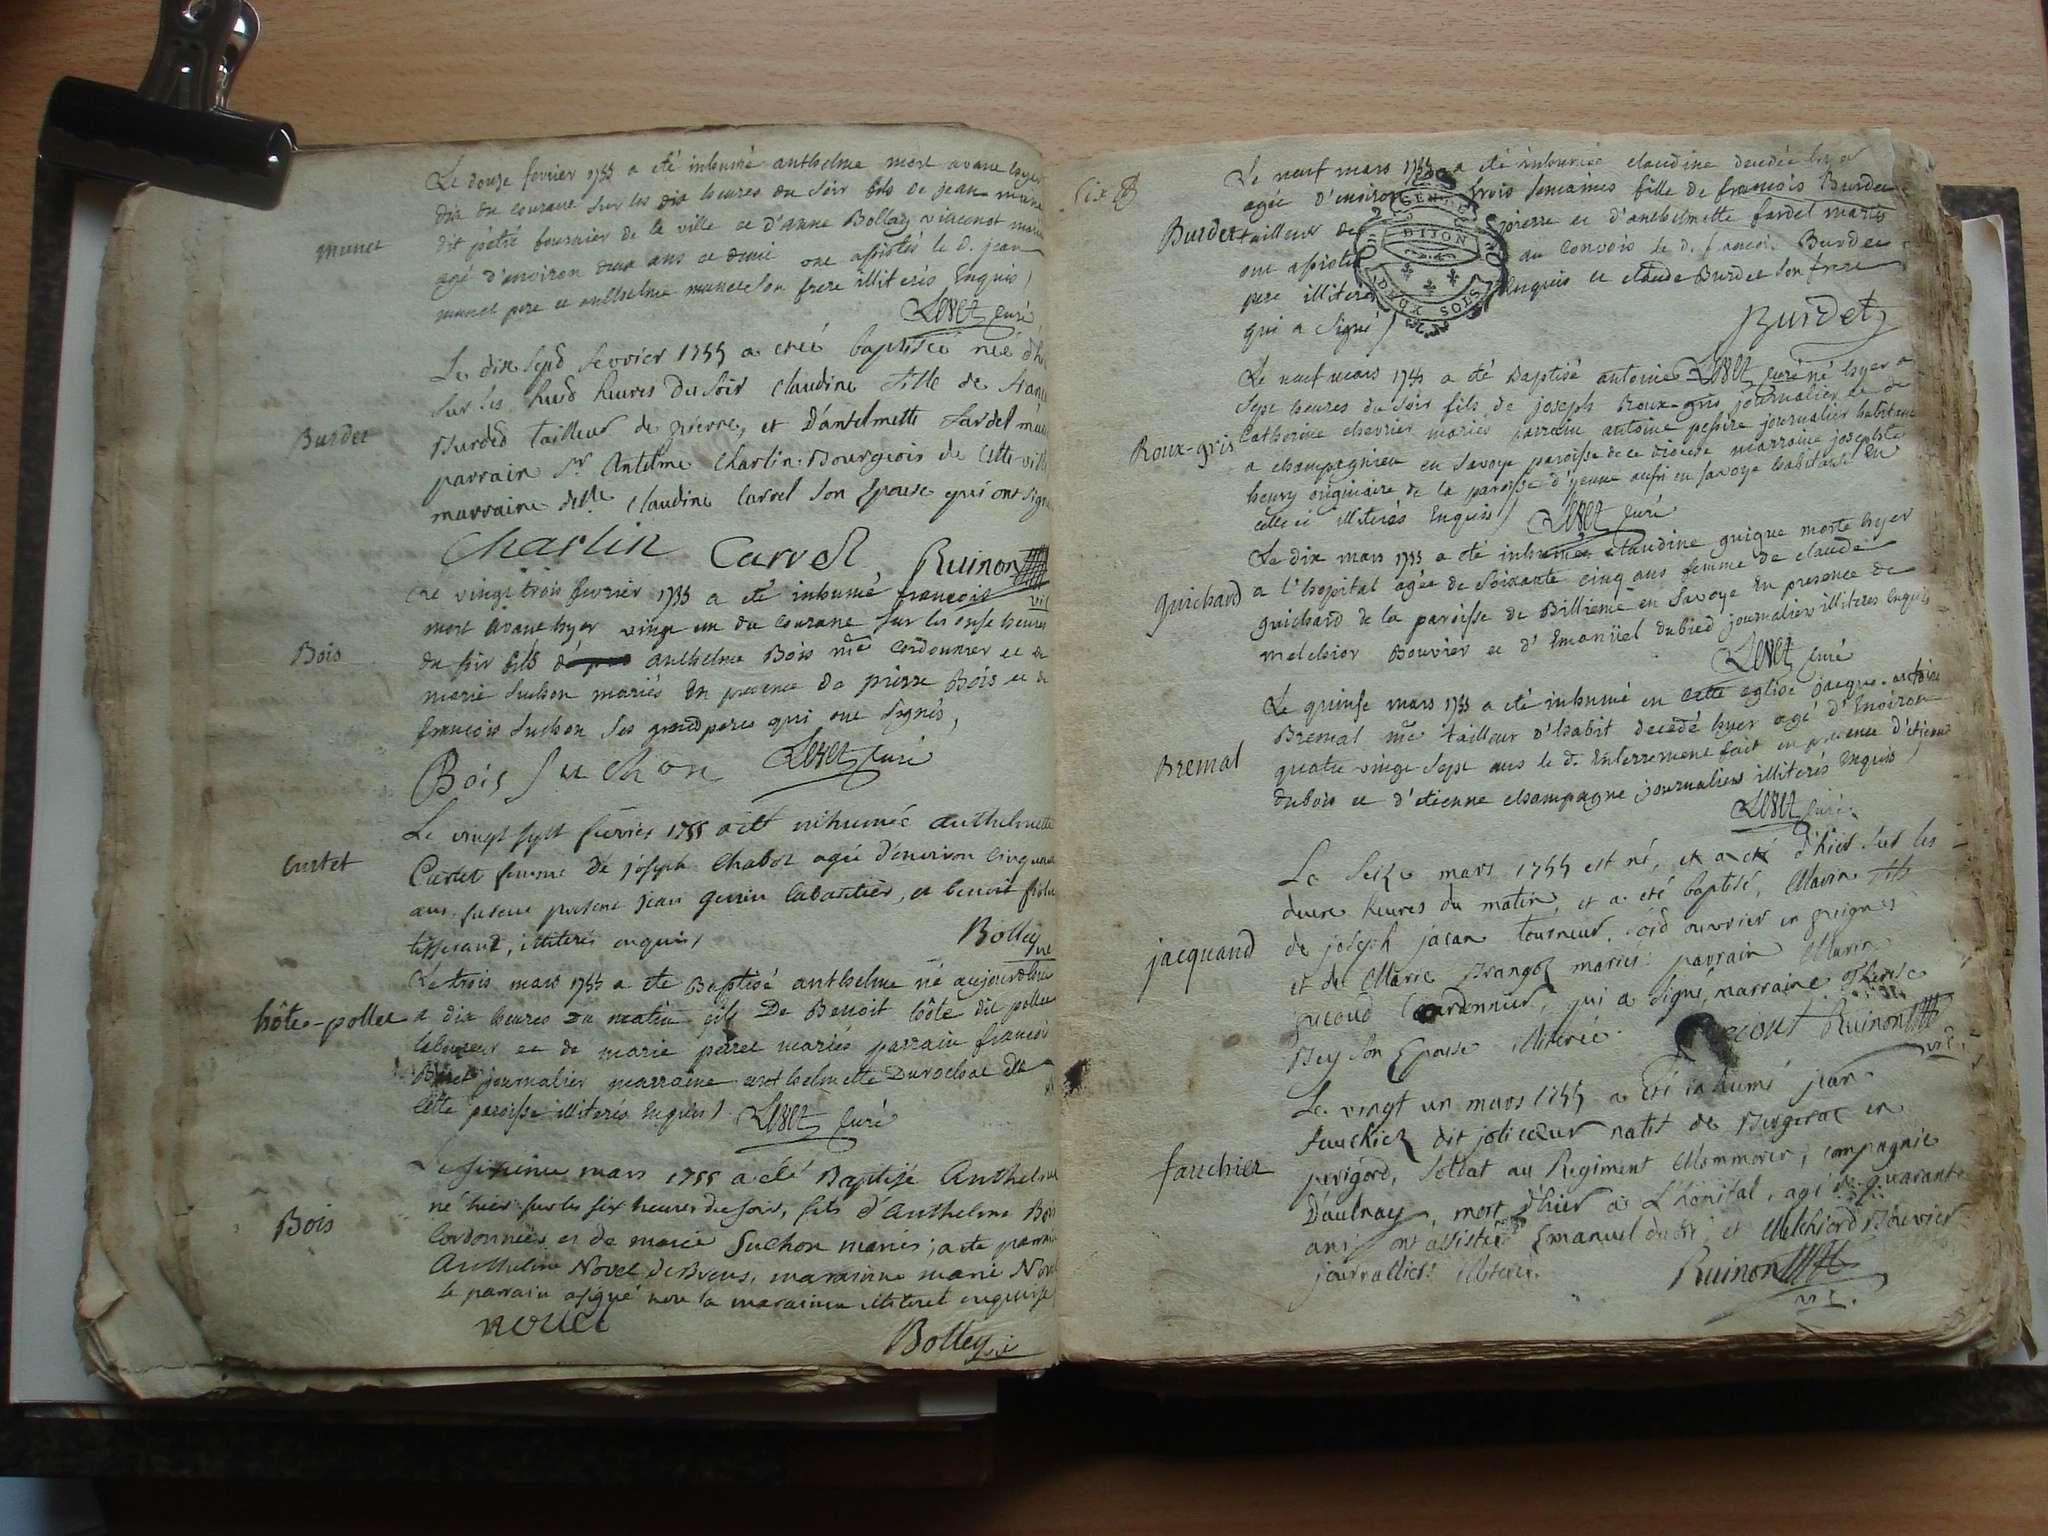 Le douze fevrier 1755 a été inhumé anthelme mort avant hyer
dix du courant sur les dix heures du soir fils de jean munet
dit pétré fournier de la ville et d'anne Bollag vincenot mariés
munet
agé d'environ deux ans et demi ont assistés le d. jean
munet pere et anthelme munet son frere illiterés Enquis
Levet curé
Le dix sept fevrier 1755 a eté baptisée née d'h
sur les huit heures du soir Claudine fille de franc
Burdet
Burded tailleur de pierre, et D'antelmette fardel ma
parrain Sr. Antelme Charlin Bourgeois de cette ville
marraine delle. Claudine Carrel son Epouse qui ont signé
Charlin Carrel Ruinon
vic
Le vingt trois fevrier 1755 a été inhumé françois
mort avant hyer vingt un du courant sur les onse heures
Bois
du soir fils d' anthelme Bois me. cordonnier et de
marie Suchon mariés En presence de pierre Bois et de
françois Suchon ses grand peres qui ont signés,
Bois Suchon Levet curé
Le vingt sept fevrier 1755 a eté inhumée anthelmette
Curtet
Curtet femme de joseph Chabot agée d'environ cinquante
ans, furent present jean genin cabartier, et benoit
tisserand, illiterés enquis
Bolley
vic
Le trois mars 1755 a eté Baptisé anthelme né aujourdhuy
hôte-pollet
a dix heures du matin fils De Benoit hôte dit pollet
laboureur et de marie peret mariés parrain françois
journalier marraine anthelmette Durochat de
cette paroisse illiterés Enquis Levet curé
Le sixieme mars 1755 a été Baptisé Anthelme
né hier sur les six heures du soir, fils d'Anthelme Bois
Bois
Cordonnier et de marie Suchon mariés; a eté parrain
Anthelme Novel de Brens, maraine marie Novel
le parrain a signé non la maraine illiteret enquise
Novel
Bolley
Le neuf mars 1755 a été inhumée claudine decedée hyer
agée d'environ trois semaines fille de françois Burdet
Burdet
tailleur de pierre et d'anthelmette fardel mariés
ont assisté au convois le d. francois Burdet
pere illiteré Enquis et claude Burdet son frere
qui a signé
GENER
DIJON
SOLS
Burdet
Levet curé
Le neuf mars 1755 a été Baptisé antoine né hyer a
sept heures du soir fils de joseph Roux-gris journalier et de
Roux-gris
Catherine chevrier mariés parrain antoine pepire journalier habitant
a champagnieu en Savoye paroisse de ce diocese marraine josephte
henry originaire de la paroisse d'yenne aussi en Savoye habitante En
celle ci illiterés Enquis Levet curé
Le dix mars 1755 a été inhumée claudine guigue morte hyer
guichard
a l'hopital agée de soixante cinq ans femme de claude
guichard de la paroisse de Billieme en Savoye En presence de
melchior Bouvier et d'Emanüel dubied journaliers illiterés Enquis
Levet curé
Le quinse mars 1755 a été inhumé en cette eglise jacque-antoine
Bremal
Bremal me tailleur d'habit decedé hyer agé d'Environ
quatre vingt sept ans le d. Enterrement fait en presence d'etienne
dubois et d'etienne champagne journaliers illiterés Enquis
Levet curé
Le seize mars 1755 est né, et a eté d'hier sur les
deux heures du matin, et a eté baptisé, Marin fils
jacquand
de joseph jacan tourneur, soid ouvrier en peignes
et de Marie Brangoz mariés: parrain Marin
jucoud Cordonnier, qui a signé, marraine Therese
Bey son Epouse illiterée.
Ruinon
vic.
Le vingt un mars 1755 a été inhumé jean
fauchier
fauchiez dit jolicœur natif de Bergerac en
perigord, soldat au Regiment Mommorin, compagnie
D'aulnay, mort d'hier à L'hopital, agé de quarante
ans; ont assistés Emanuel dubi; et Melchiord Bouvier
journalliers illiterés.
Ruinon
vic.